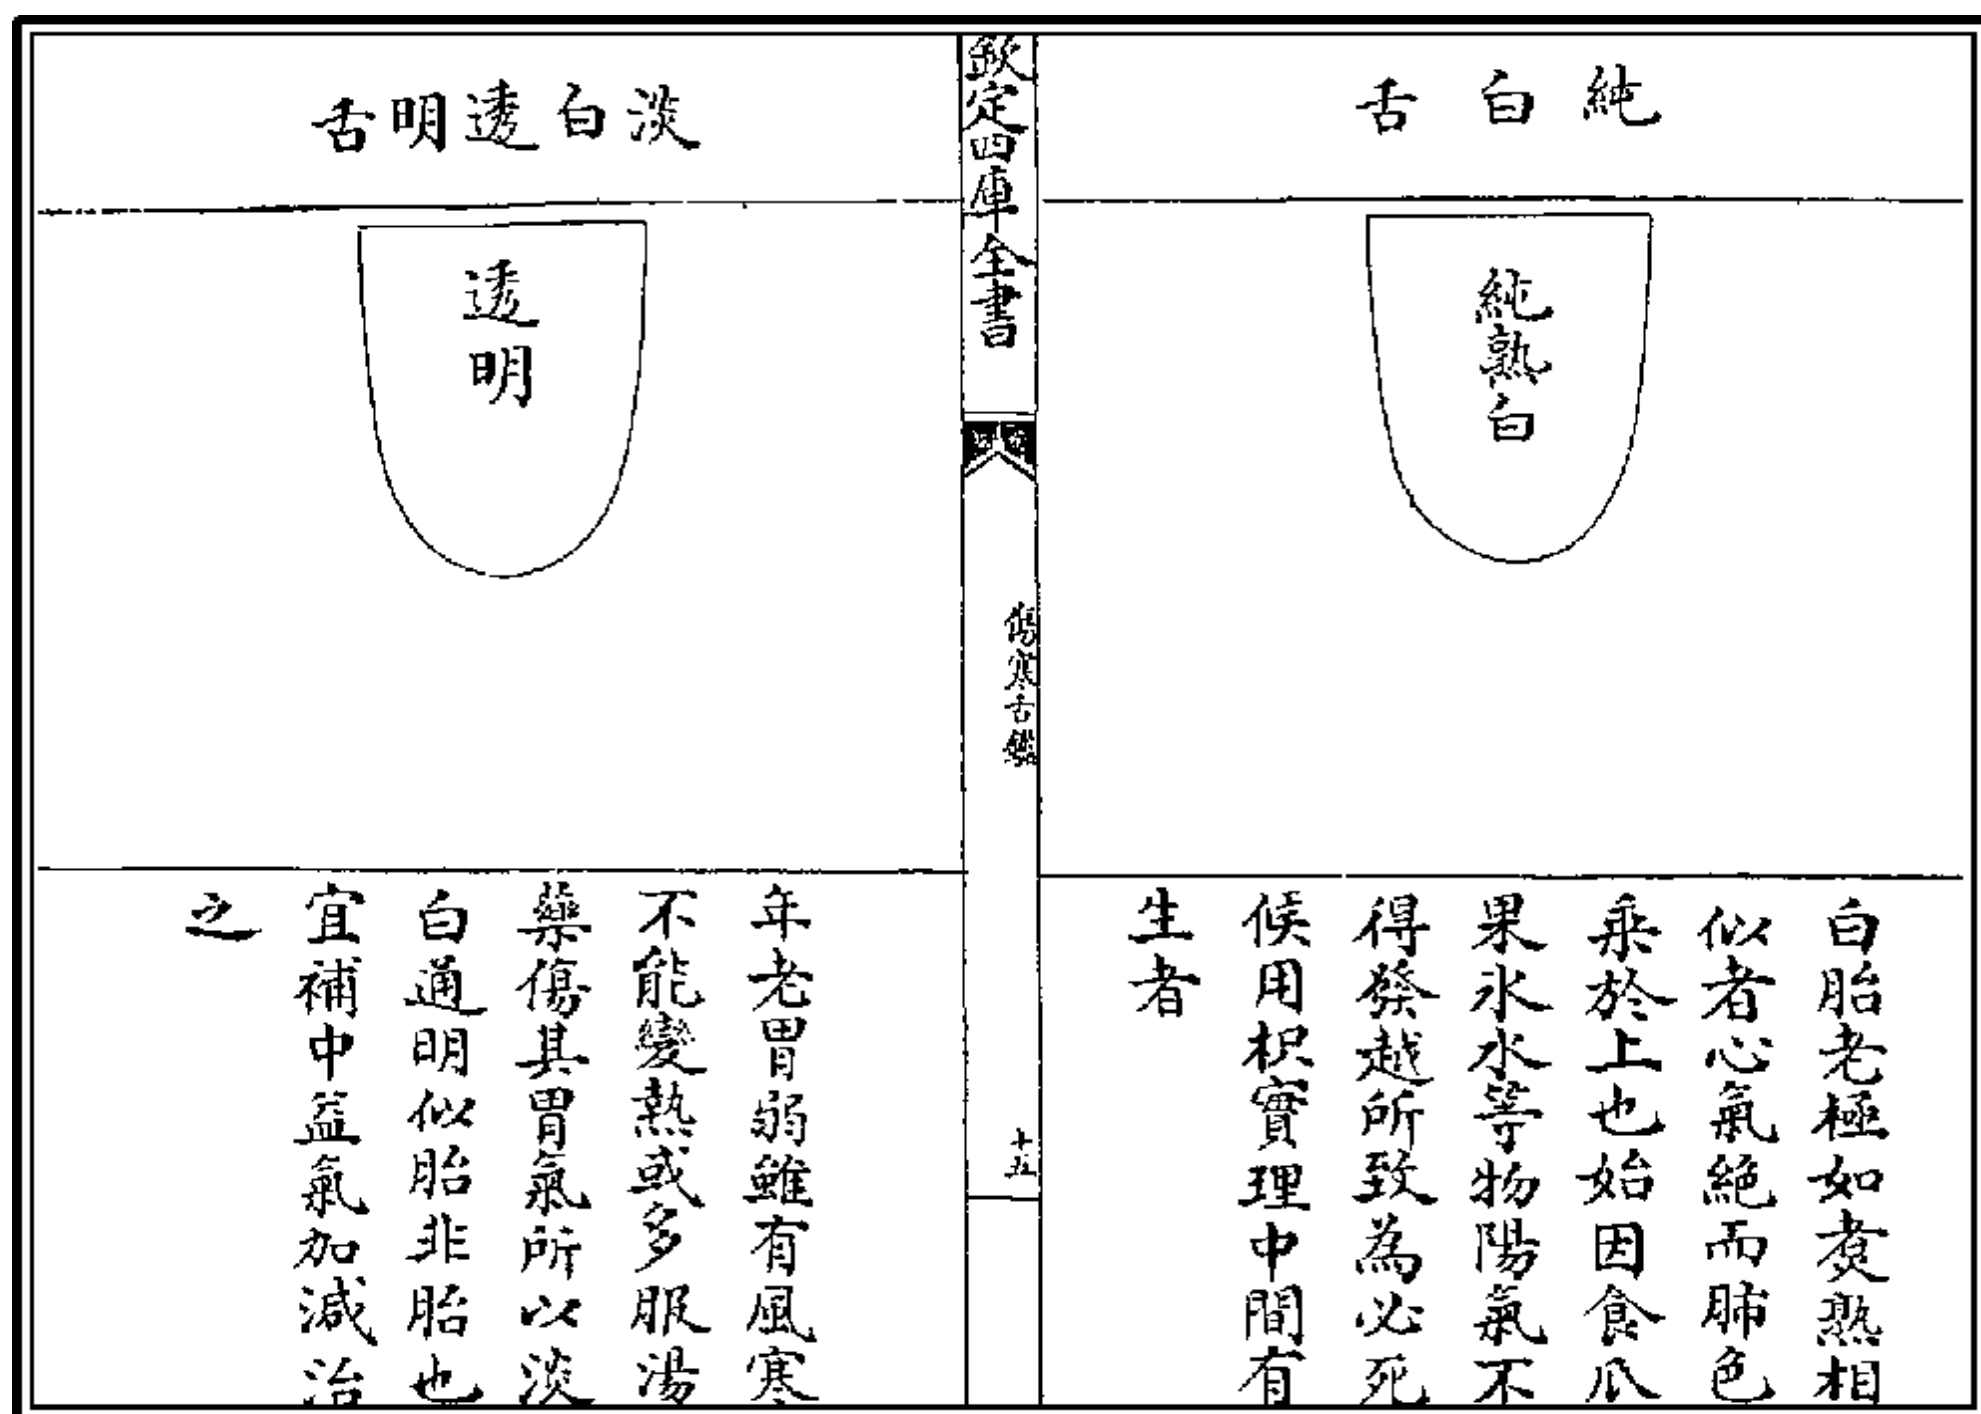 純白舌
純熟白
白胎老極如煑熟相
似者心氣絶而肺色
乘於上也始因食瓜
果氷水等物陽氣不
得發越所致為必死
候用枳實理中間有
生者
欽定四庫全書
傷寒舌鑑
十五
淡白透明舌
透明
年老胃弱雖有風寒
不能變熱或多服湯
藥傷其胃氣所以淡
白通明似胎非胎也
宜補中益氣加減治
之